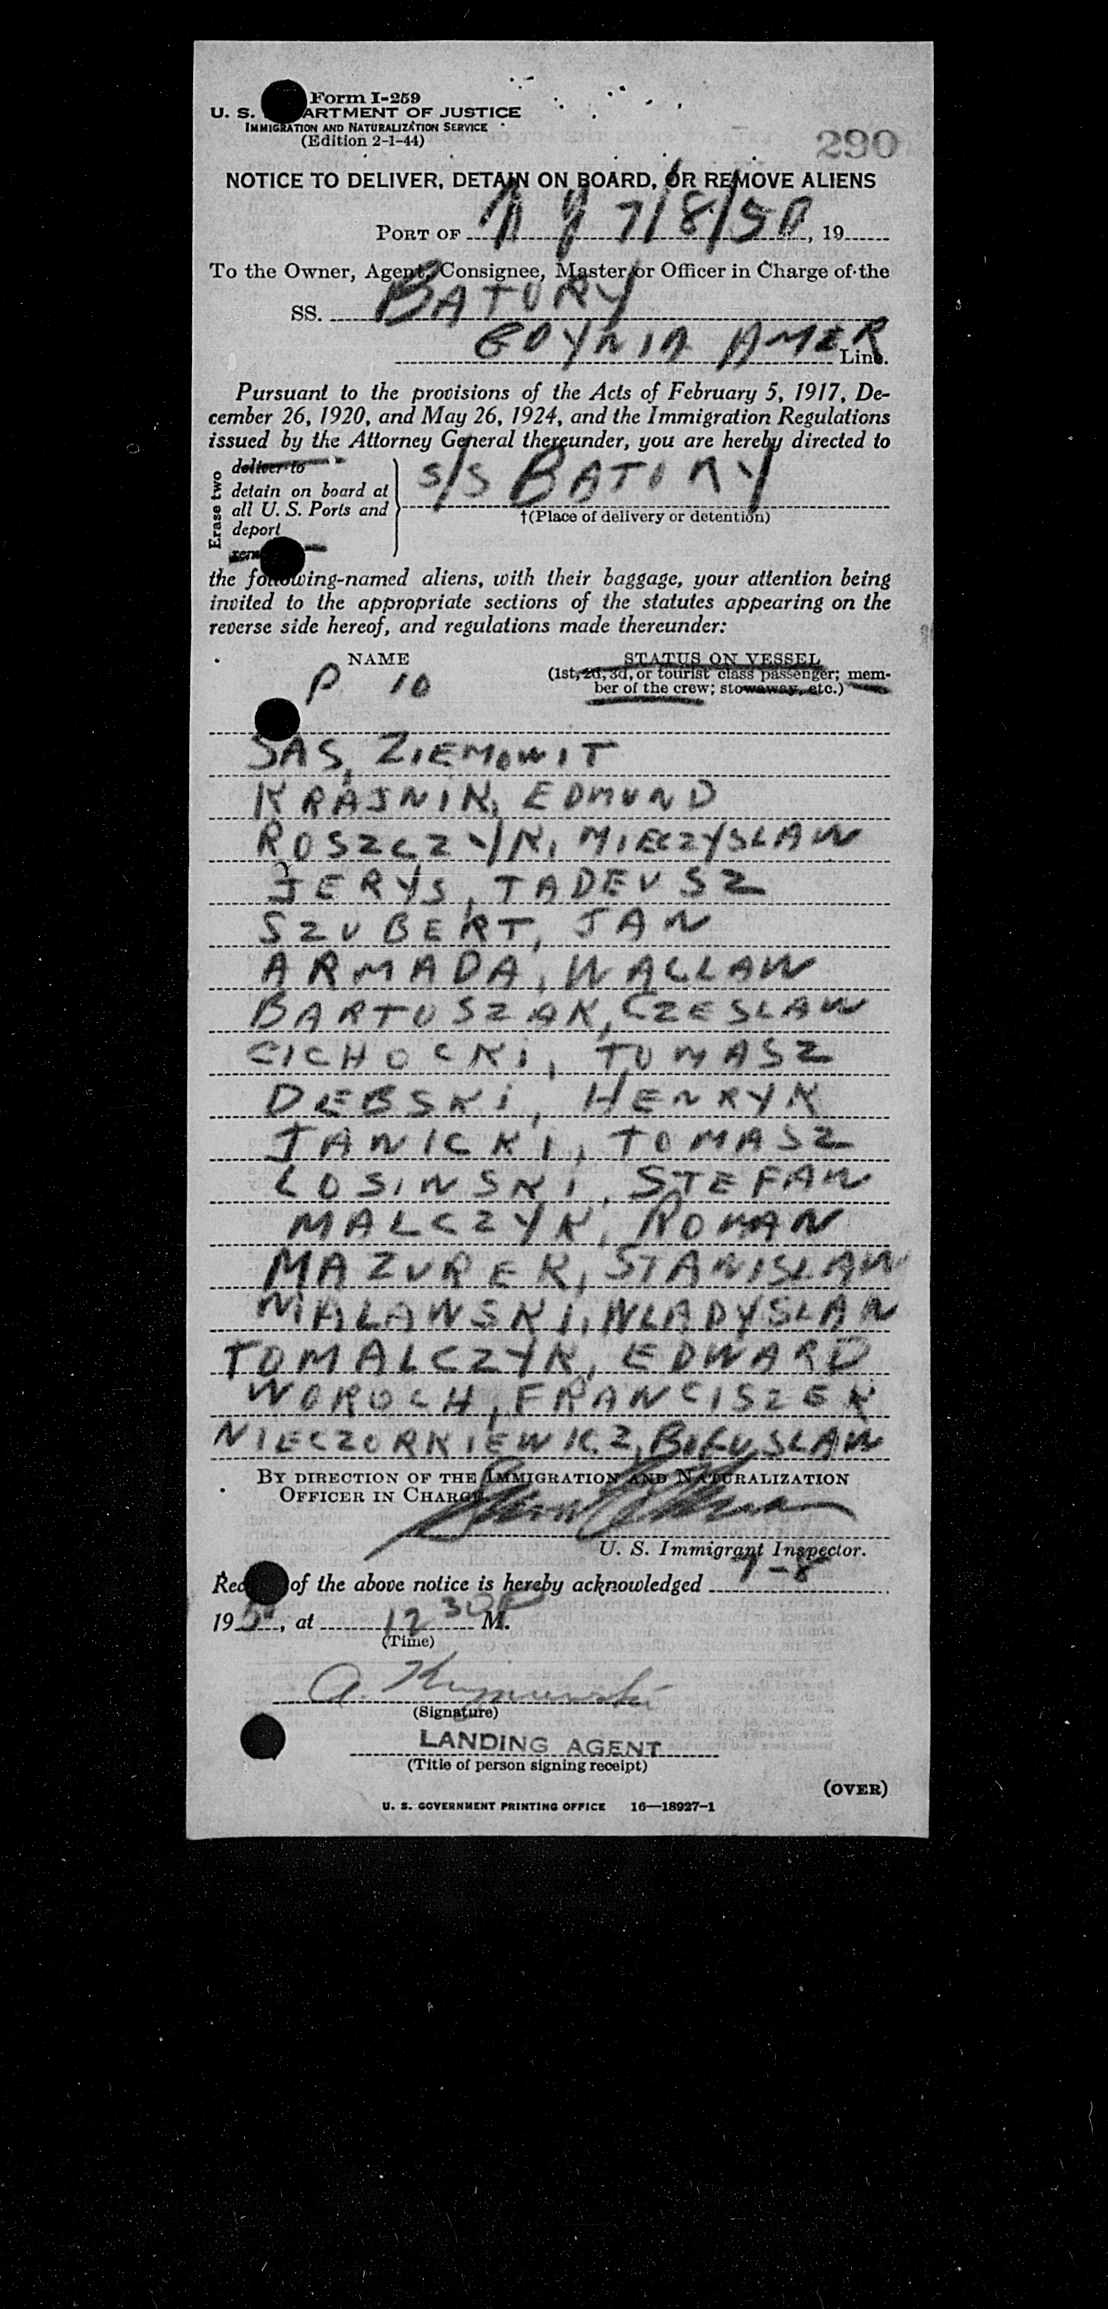 Form I-259
U. S. ARTMENT OF JUSTICE
IMMIGRATION AND NATURALIZATION SERVICE
(Edition 2-1-44)
290
NOTICE TO DELIVER, DETAIN ON BOARD, OR REMOVE ALIENS
PORT OF N Y 7/8/50, 19
To the Owner, Agent, Consignee, Master or Officer in Charge of the
SS. BATORY
GDYNIA AMER Line.
Pursuant to the provisions of the Acts of February 5, 1917, De-
cember 26, 1920, and May 26, 1924, and the Immigration Regulations
issued by the Attorney General thereunder, you are hereby directed to
Erase two
deliver to
detain on board at
all U. S. Ports and
deport
S/S BATORY
†(Place of delivery or detention)
the following-named aliens, with their baggage, your attention being
invited to the appropriate sections of the statutes appearing on the
reverse side hereof, and regulations made thereunder:
NAME STATUS ON VESSEL
(1st, 2d, 3d, or tourist class passenger; mem-
ber of the crew; stowaway, etc.)
P 10
SAS, ZIEMOWIT
KRAJNIK, EDMUND
ROSZCZYK, MIECZYSLAW
JERYS, TADEUSZ
SZUBERT, JAN
ARMADA, WACLAW
BARTOSZAK, CZESLAW
CICHOCKI, TOMASZ
DEBSKI, HENRYK
JANICKI, TOMASZ
LOSINSKI, STEFAN
MALCZYK, ROMAN
MAZUREK, STANISLAW
NIALAWSKI, WLADYSLAW
TOMALCZYK, EDWARD
WOROCH, FRANCISZEK
NIECZORKIEWICZ, BOGUSLAW
BY DIRECTION OF THE IMMIGRATION AND NATURALIZATION
OFFICER IN CHARGE
U. S. Immigrant Inspector.
of the above notice is hereby acknowledged 7-8
1950, at 12 30 P M.
(Time)
A.
(Signature)
LANDING AGENT
(Title of person signing receipt)
(OVER)
U. S. GOVERNMENT PRINTING OFFICE 16—18927-1